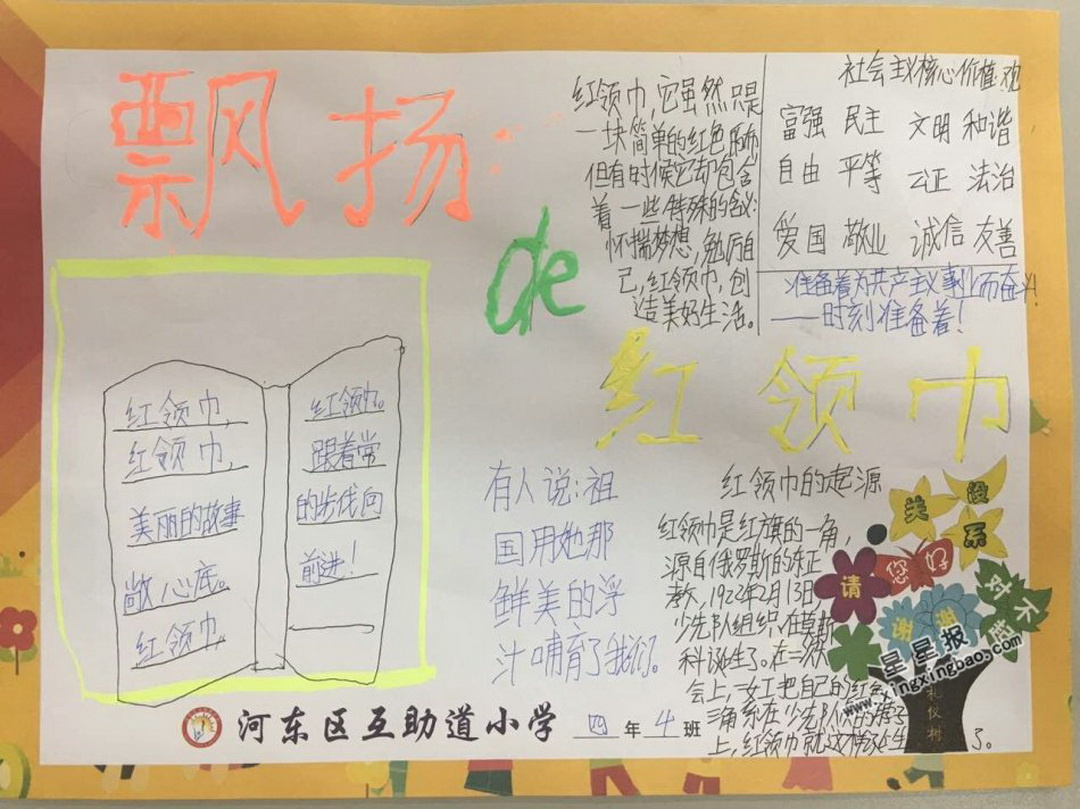 飘扬
de
红领巾
红领巾,它虽然只是
一块简单的红色
但有时候它却包含
着一些特殊的含义:
怀揣梦想,勉厉自
己,红领巾,创
造美好生活。
社会主义核心价值观
富强 民主 文明 和谐
自由 平等 公正 法治
爱国 敬业 诚信 友善
准备着为共产主义事业而奋!
——时刻准备着!
红领巾,
红领巾,
美丽的故事
心底。
红领巾,
红领巾。
跟着党
的步伐向
前进!
有人说:祖
国用她那
鲜美的
汁哺育了我们。
红领巾的起源
红领巾是红旗的一角,
源自俄罗斯的东正
教,1922年2月13日
少先队组织,在莫斯
科诞生了。在一次
会上,一女工把自己的红
三角系在少先队
上,红领巾就这样生
了。
关
没
系
您好
请
对不
谢谢
礼仪树
星星报
www.xingxingbao.com
河东区互助道小学 四年4班